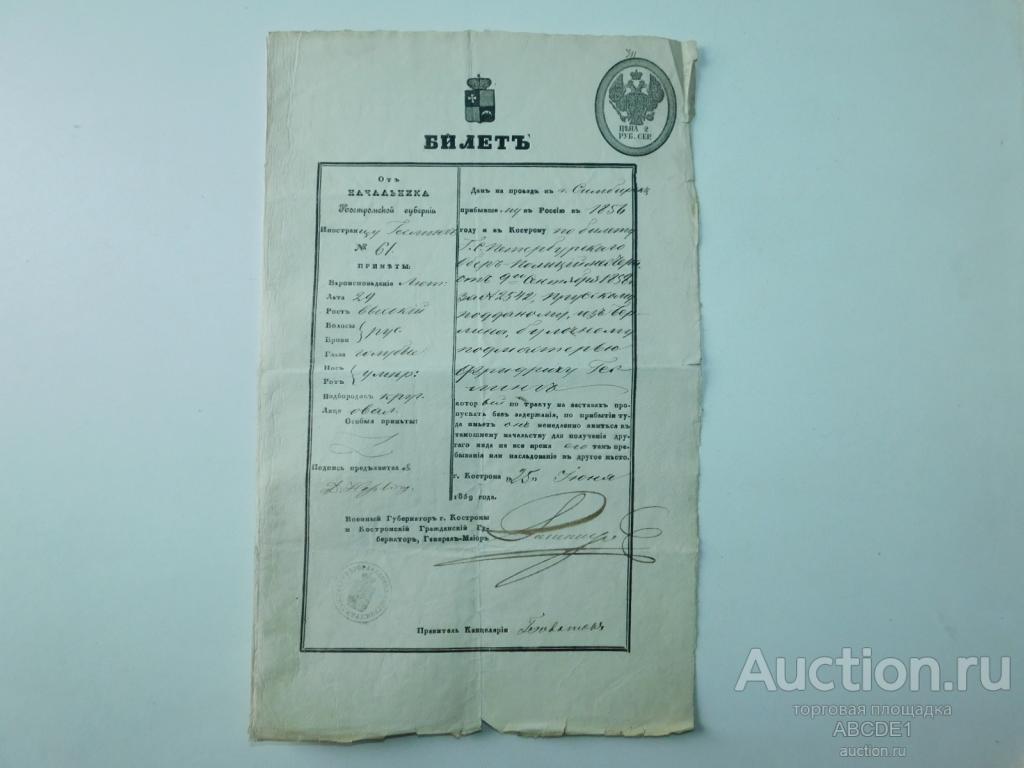 ЦѢНА 2
РУБ. СЕР.
БИЛЕТЪ
Отъ
НАЧАЛЬНИКА
Костромской губерніи
Иностранцу
№ 61.
ПРИМѢТЫ:
Вѣроисповѣданіе Лют:
Лѣта 29
Ростъ высокій
Волосы
Брови
рус
Глаза голубые
Носъ
Ротъ
умѣр:
Подбородокъ круг.
Лице овал.
Особыя примѣты:
Подпись предъявителя
Данъ на проѣздъ въ г. Симбирскъ
прибывшему въ Россію въ 1856
году и въ Кострому по билету
С. Петербургскаго
Оберъ-Полиціймейстера
отъ 9го Сентября 1858
за № 2542, Прусскому
подданому, изъ Бер-
лина, булочному
подмастерью
Фридриху Гес-
лингъ
которвый по тракту на заставахъ про-
пускать безъ задержанія, по прибытіи ту-
да имѣетъ онъ немедленно явиться къ
тамошнему начальству для полученія дру-
гаго вида на все время его тамъ пре-
быванія или наслѣдованіе въ другое мѣсто.
г. Кострома „25„ Іюня
1859 года.
Военный Губернаторъ г. Костромы
и Костромскій Гражданскій Гу-
бернаторъ, Генералъ-Маіоръ
Правитель Канцеляріи
Auction.ru
торговая площадка
ABCDE1
auction.ru